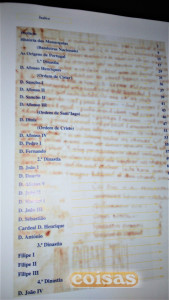 Índice
História das Monarquias
(Bandeiras Nacionais)
As Origens de Portugal
1.ª Dinastia
D. Afonso Henriques
D. Sancho I
D. Afonso II
D. Sancho II
D. Afonso III
D. Dinis
(Ordem de Cristo)
D. Afonso IV
D. Pedro I
D. Fernando
2.ª Dinastia
D. João I
D. Duarte
D. Afonso V
D. João II
D. Manuel I
D. João III
D. Sebastião
Cardeal D. Henrique
D. António
3.ª Dinastia
Filipe I
Filipe II
Filipe III
4.ª Dinastia
D. João IV
coisas